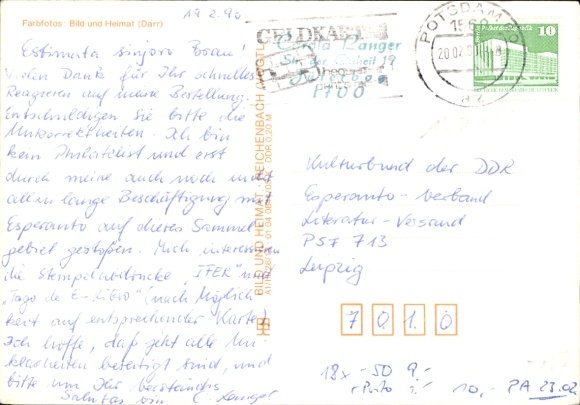 Farbfotos: Bild und Heimat (Darr)
19.2.90
Estimata sinjoro
Vielen Dank für Ihr schnelles
Reagieren auf meine Bestellung.
Entschuldigen Sie bitte die
Unkorrektheiten. Ich bin
kein Philatelist und erst
durch meine auch noch nicht
allzu lange Beschäftigung mit
Esperanto auf dieses Sammel-
gebiet gestoßen. Mich interessieren
die Stempelabdrücke "IFER" und
"Tago de E-libro" (nach Möglich-
keit auf entsprechender Karte)
Ich hoffe, daß jetzt alle Un-
klarheiten beseitigt sind, und
bitte um Ihr Verständnis
Salutas vin C. Langer
BILD UND HEIMAT · REICHENBACH (VOGTL)
DDR 0,20 M
Langer
Str. der Einheit 19
1700
POTSDAM
1560
20.02.90
10
Kulturbund der DDR
Esperanto-Verband
Literatur-Versand
PSF 713
Leipzig
7010
18x -50 9,-
+ Porto 1,- 10,- PA 23.02.